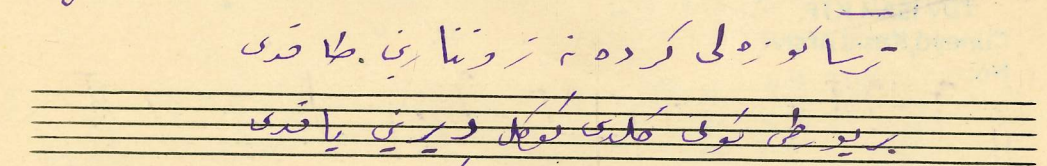 ترسا کوزه لی کردنه زونتارین طاقدی
بر یورطی کونی کلدی کوکل دیرینی یاقدی